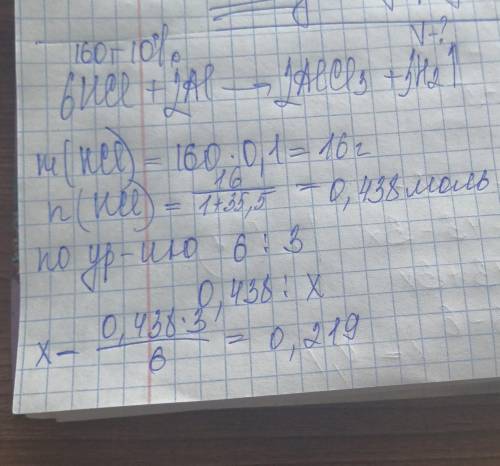 V-?
160г-10%
6HCl + 2Al → 2AlCl3 + 3H2↑
m(HCl) = 160·0,1 = 16г
n(HCl) = 16/1+35,5 = 0,438 моль
по ур-ию 6 : 3
0,438 : x
x - 0,438·3/6 = 0,219